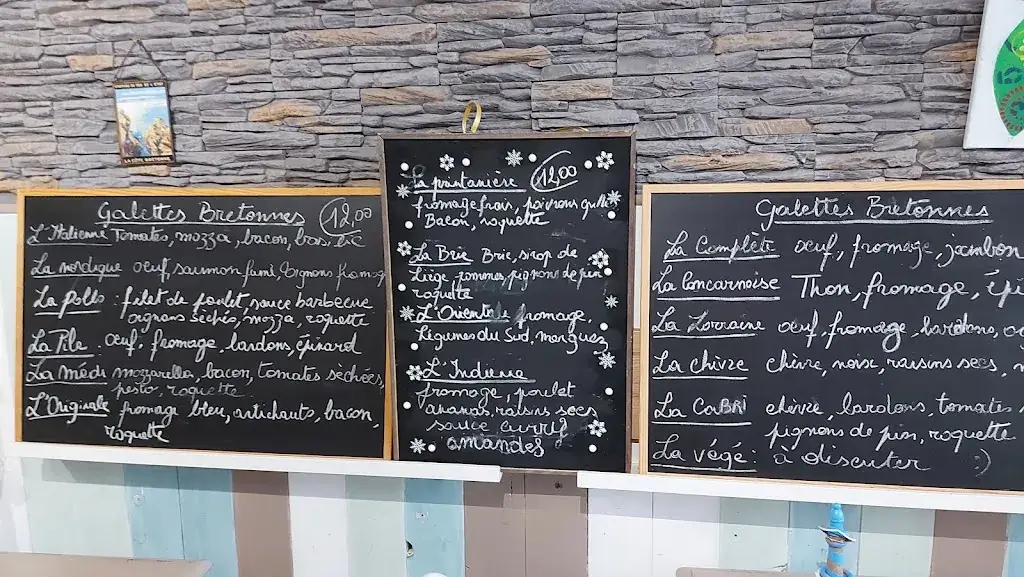 LA CÔTE BRETONNE
Galettes Bretonnes 12,00
L'Italienne Tomates, mozza, bacon,
La nordique oeuf, saumon fumé, oignons fromag
La polls : filet de poulet, sauce barbecue
oignons séchés, mozza, roquette
La Pile oeuf, fromage, lardons, épinard
La médi mozarella, bacon, tomates séchées,
pesto, roquette
L'Originale fromage bleu, artichauts, bacon,
roquette
La printanière 12,00
fromage frais, poivrons grillés
Bacon, roquette
La Brie Brie, sirop de
Liège, pommes, pignons de pin
roquette
L'Orientale fromage
Légumes du Sud, merguez
L'Indienne
fromage, poulet
ananas, raisins secs
sauce curry
amandes
Galettes Bretonnes
La Complète oeuf, fromage, jambon
La Concarnoise Thon, fromage, épi
La Lorraine oeuf, fromage, lardons,
La chèvre chèvre, noix, raisins secs,
La CABRI chèvre, lardons, tomates
pignons de pin, roquette
La végé : à discuter :)